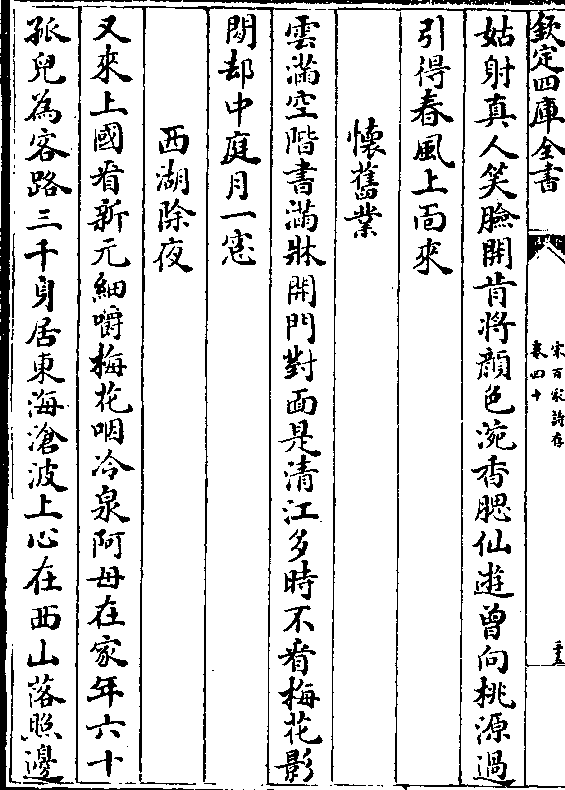 欽定四庫全書
宋百家詩存
卷四十
二十五
姑射真人笑臉開肯將顔色涴香腮仙遊曾向桃源過
引得春風上面來
懷舊業
雲滿空階書滿牀開門對面是清江多時不看梅花影
閒却中庭月一窓
西湖除夜
又來上國看新元細嚼梅花咽冷泉阿母在家年六十
孤兒為客路三千身居東海滄波上心在西山落照邊